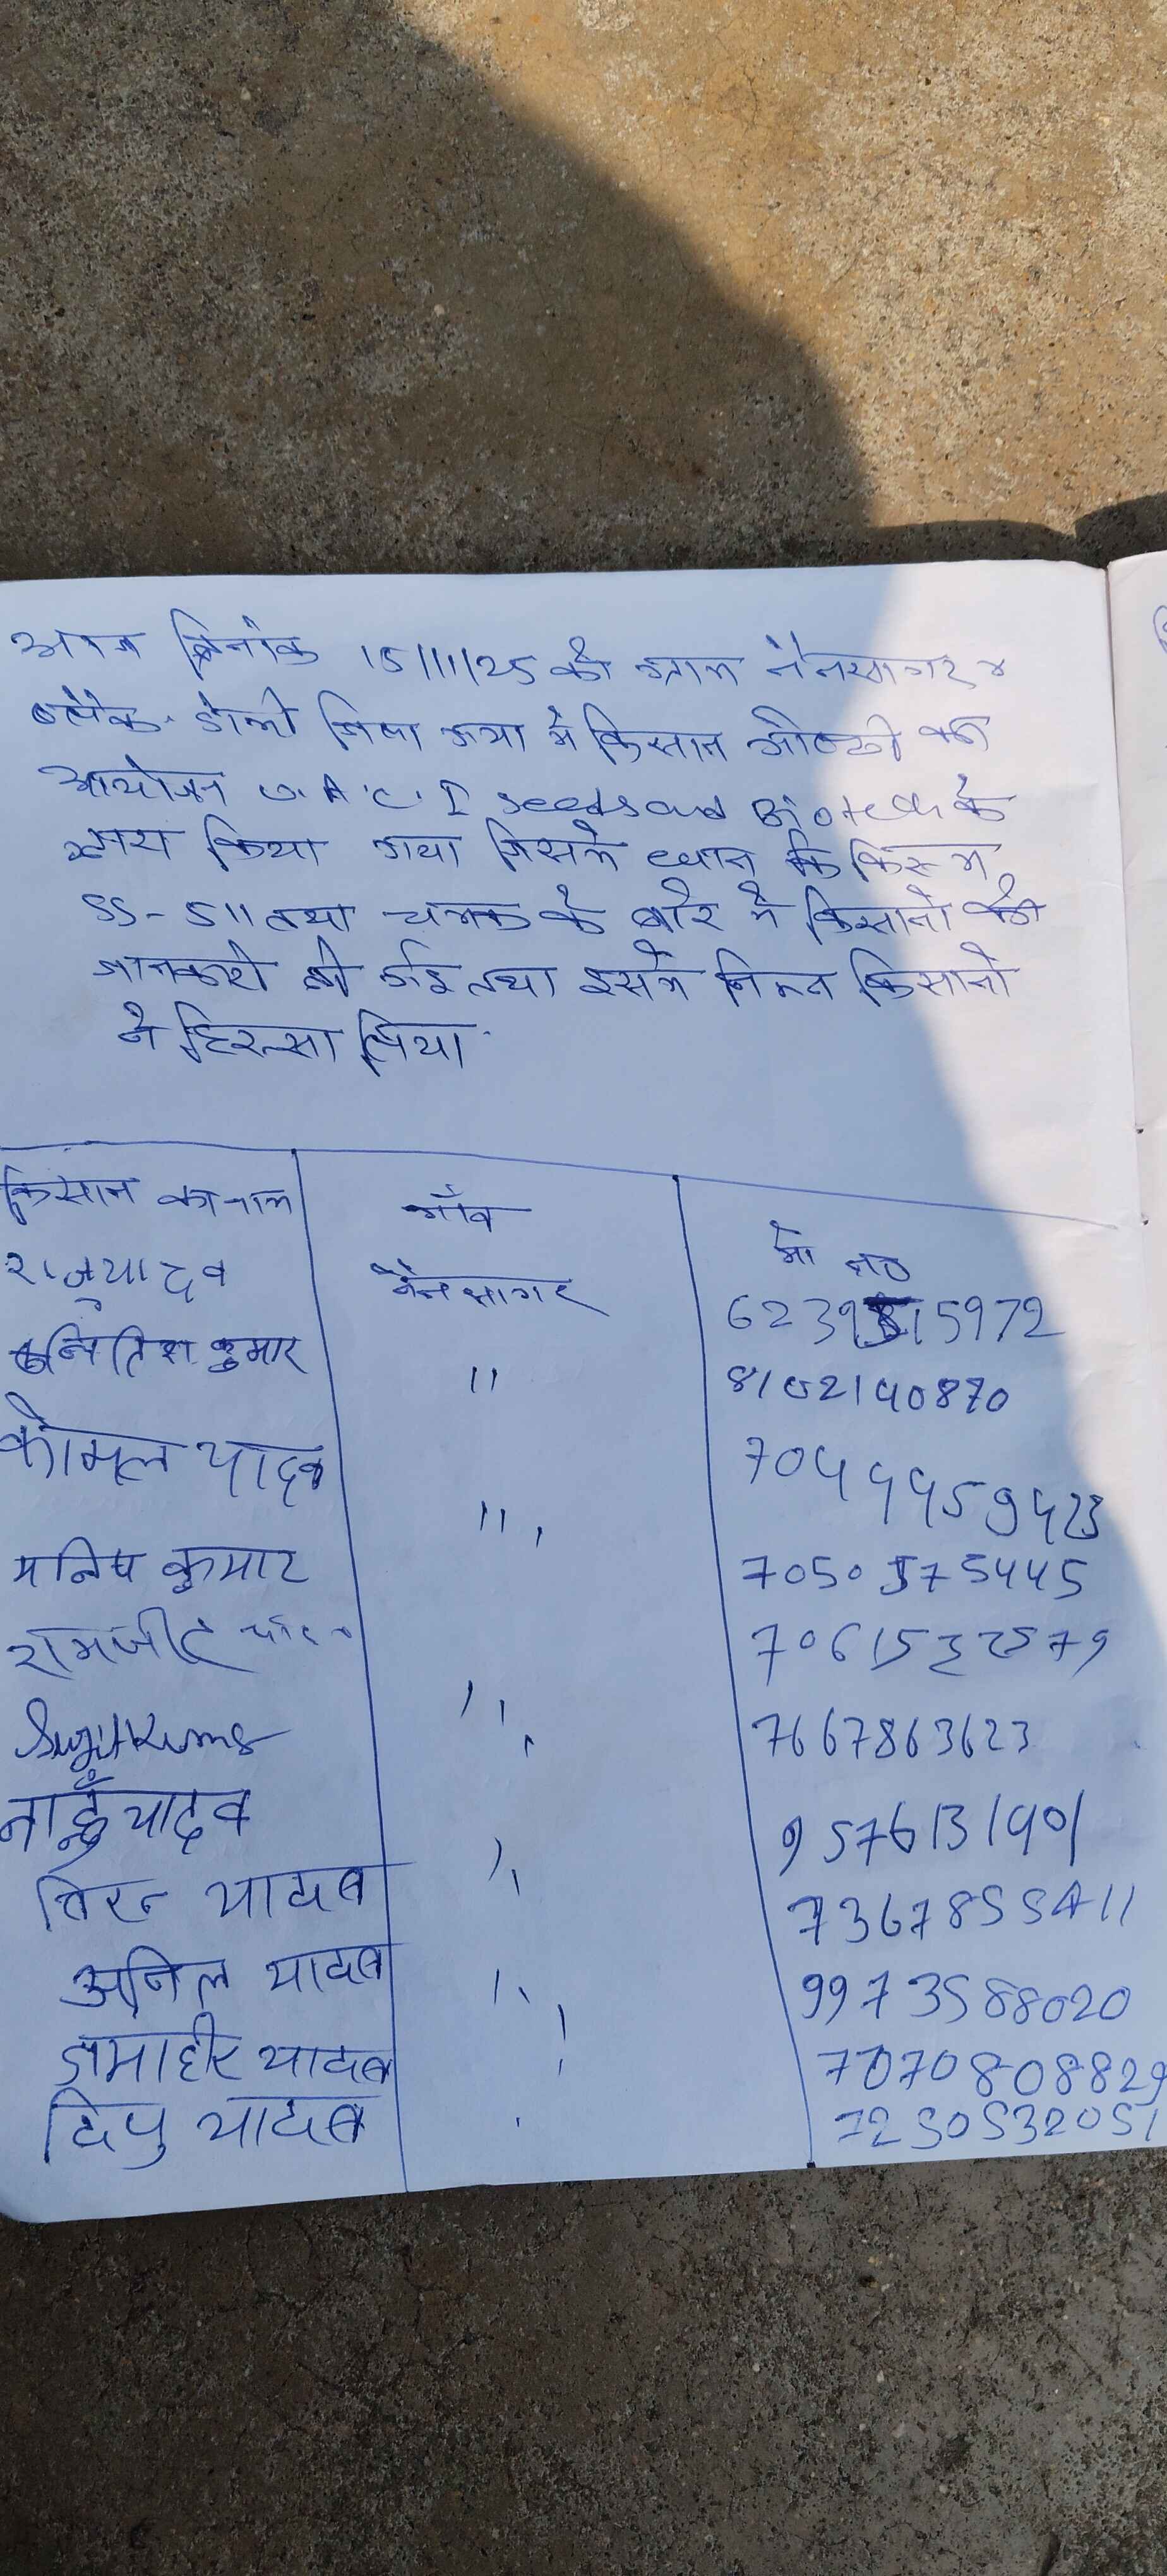 आज दिनांक 15/11/25 को ग्राम नैनसागर
ब्लॉक- डोभी जिला गया मे किसान गोष्ठी का
आयोजन U.A.C.I seeds and Biotech के
द्वारा किया गया जिसमे धान कि किस्म
SS-511 तथा चमक के बारे मे किसानो को
जानकारी दी गई तथा इसमे निम्न किसानो
ने हिस्सा लिया
किसान का नाम गाँव मो न०
राजु यादव नैनसागर 6239515972
नितिश कुमार 11 8102140870
कोमल यादव 11, 70444459423
मनिष कुमार 7050575445
रामजीत 7061532579
Sujit Kumar 11, 7667863623
नान्हुँ यादव 9576131401
विरन यादव 7367855411
अनिल यादव 9973588020
जमाहीर यादव 7070808829
दिपु यादव 7250532051